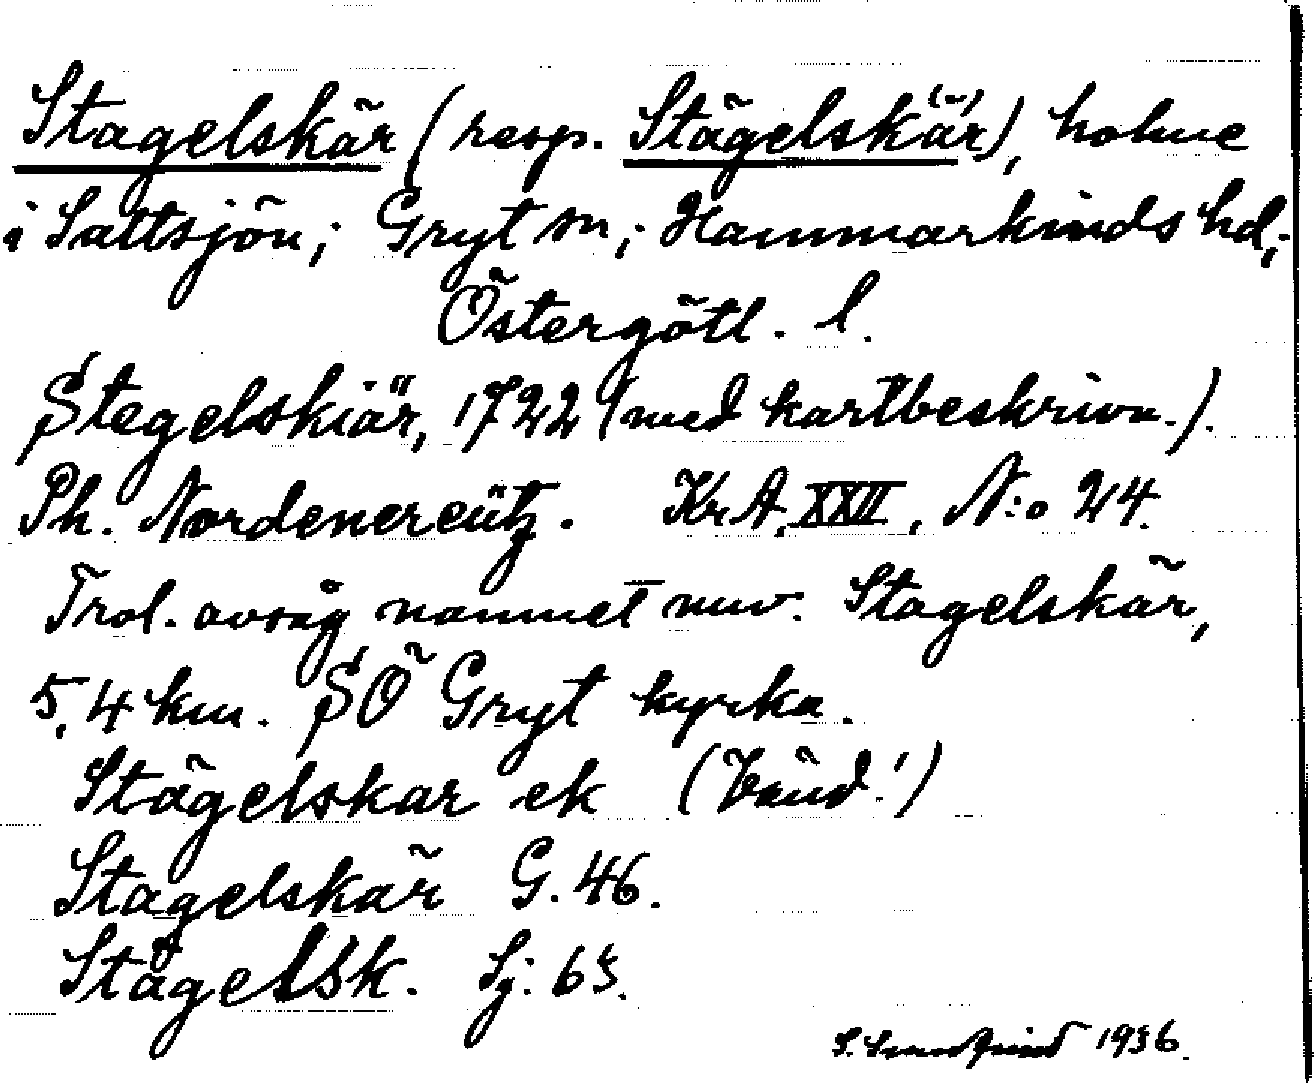 Stagelskär (resp. Stägelsk(ä)r), holme
i Saltsjön; Gryt sn; Hammarkinds hd;
Östergötl. l.
Stegelskiär, 1722 (med kartbeskrivn.).
Ph. Nordencreütz. Kr.A. XXII, N:o 24.
Trol. avsåg namnet nuv. Stagelskär,
5,4 km. SÖ Gryt kyrka.
Stägelskar ek (Vänd!)
Stagelskär G. 46.
Stågelsk. Sj. 65.
S. 1936.